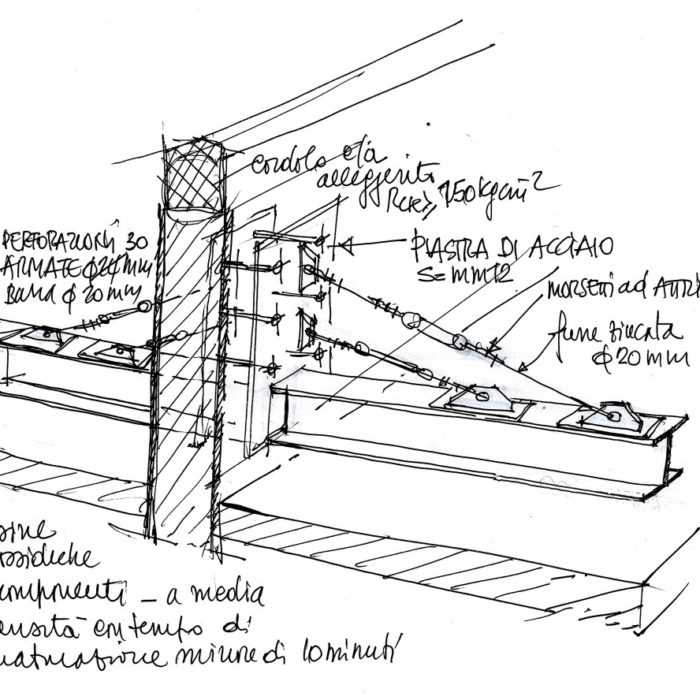 cordolo c/a
alleggerito
Rck≥ 250kg/cm²
PERFORAZIONI 30
ARMATE ϕ24mm
BARRA ϕ 20mm
PIASTRA DI ACCIAIO
S=mm12
MORSETTI ad ATTRI
fune zincata
ϕ20mm
componenti – a media
densità con tempo di
maturazione minore di 10 minuti